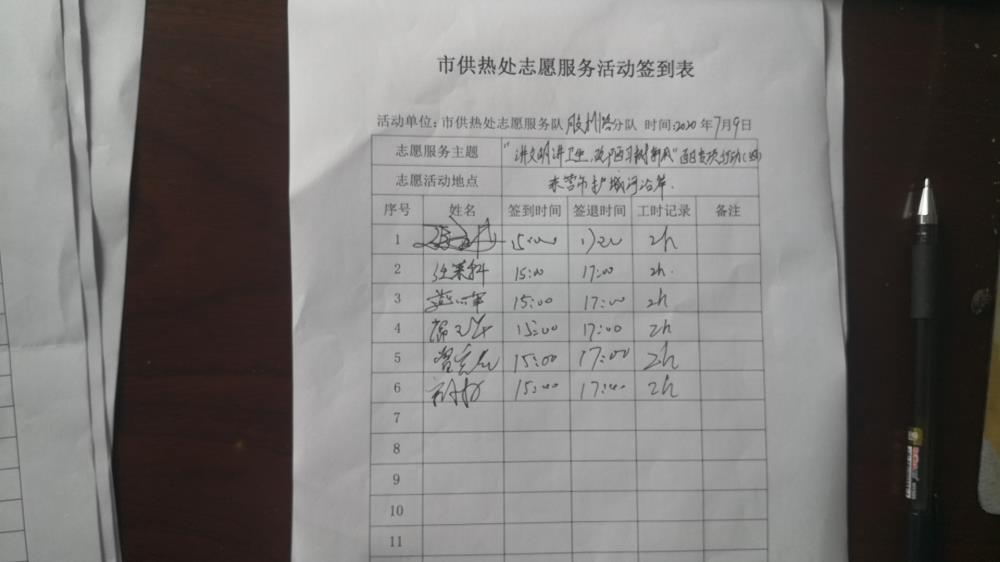 市供热处志愿服务活动签到表
活动单位:市供热处志愿服务队胶州路分队 时间:2020年7月9日
志愿服务主题 "讲文明讲卫生,破陋习树新风"
志愿活动地点 东营市护城河沿岸.
序号 姓名 签到时间 签退时间 工时记录 备注
1 15:00 17:00 2h
2 任荣科 15:00 17:00 2h.
3 15:00 17:00 2h
4 15:00 17:00 2h
5 15:00 17:00 2h
6 15:00 17:00 2h
7
8
9
10
11